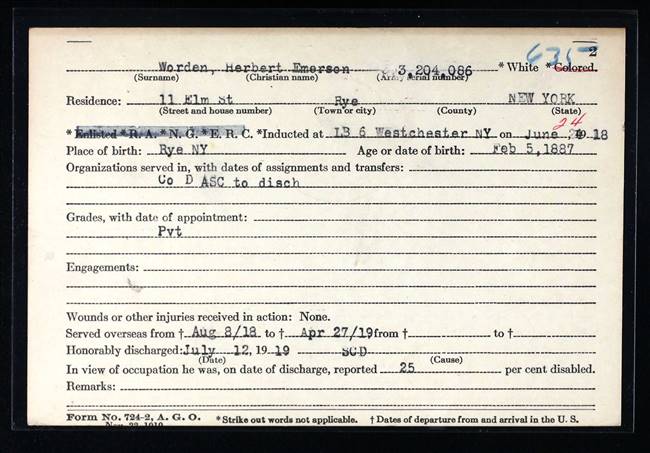 635 2
Worden, Herbert Emerson 3,204,086 * White * Colored.
(Surname) (Christian name) (Army serial number)
Residence: 11 Elm St Rye NEW YORK
(Street and house number) (Town or city) (County) (State)
24
* Enlisted * R. A. * N. G. * E. R. C. * Inducted at LB 6 Westchester NY on June 1918
Place of birth: Rye NY Age or date of birth: Feb 5, 1887
Organizations served in, with dates of assignments and transfers:
Co D ASC to disch
Grades, with date of appointment:
Pvt
Engagements:
Wounds or other injuries received in action: None.
Served overseas from † Aug 8/18 to † Apr 27/19 from † to †
Honorably discharged: July 12, 1919 SCD
(Date) (Cause)
In view of occupation he was, on date of discharge, reported 25 per cent disabled.
Remarks:
Form No. 724-2, A. G. O. * Strike out words not applicable. † Dates of departure from and arrival in the U. S.
Nov. 22, 1919